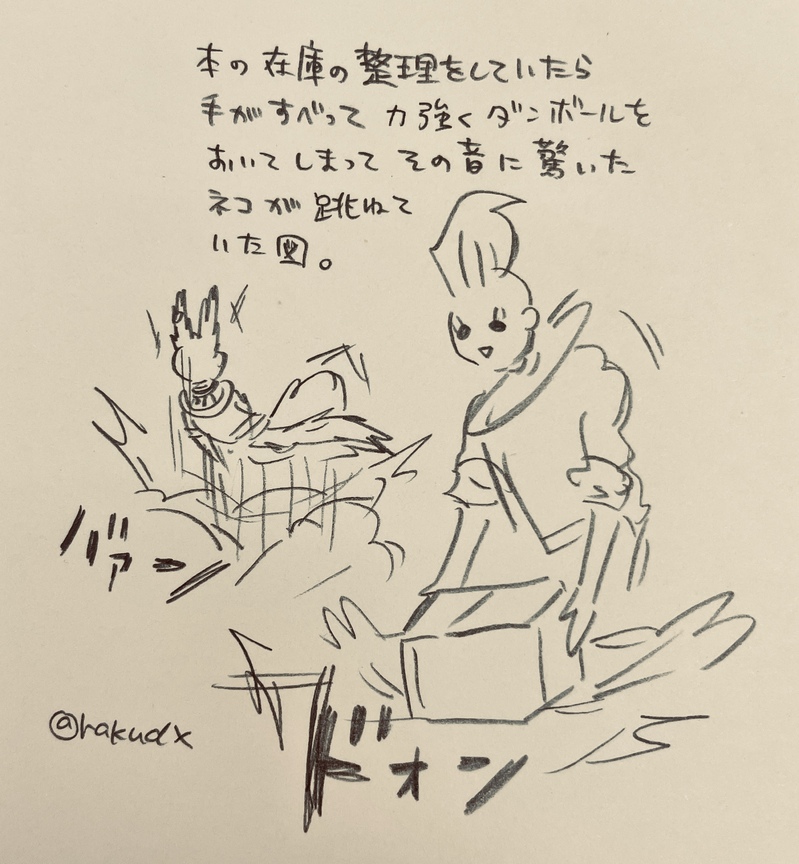 本の在庫の整理をしていたら
手がすべって力強くダンボールを
おいてしまってその音に驚いた
ネコが跳ねて
いた図。
バァーン
ドオン
@rakudx